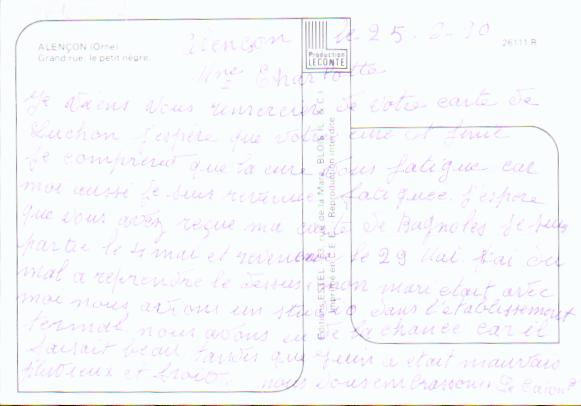 ALENÇON (Orne)
Grand rue: le petit nègre.
Production
LECONTE
26111 R
Alençon le 25.
Mme Charlotte
Je viens vous remercier de votre carte de
Luchon j'espère que votre cure et finit
Je comprend que la cure vous fatigue car
moi aussi je suis revenue fatiguée. j'espère
que vous avez reçue ma carte de Bagnoles je suis
partie le 4 mai et revenue le 29 Mai j'ai eu
mal a reprendre le dessus mon mari était avec
moi nous avions un studio dans l'établissement
termal nous avons eu de la chance car il
faisait beau tandis que Juin a était mauvais
pluvieux et froid. nous vous embrassons
Editions ESTEL - rue de la Mare, BLOIS
Imprimé en C.E.E. Reproduction interdite